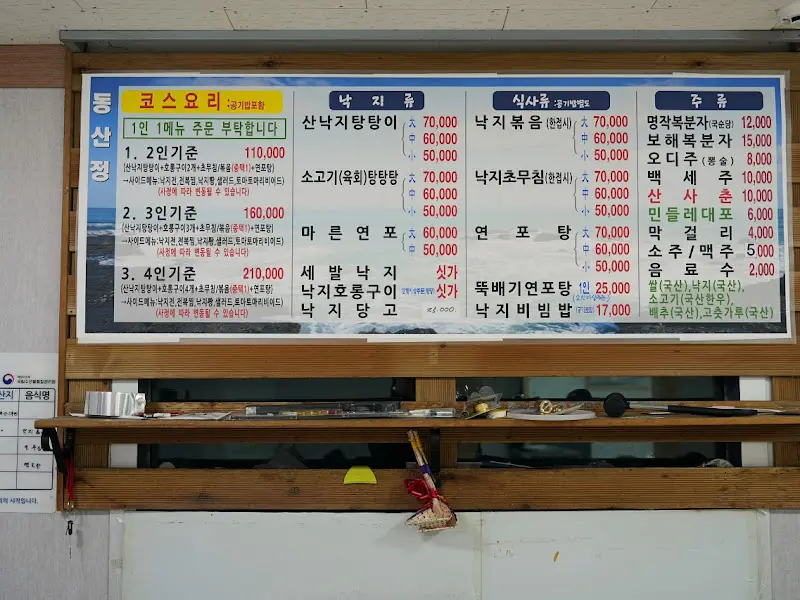 동산정
코스요리 :공기밥포함
1인 1메뉴 주문 부탁합니다
1. 2인기준 110,000
(산낙지탕탕이+호롱구이2개+초무침/볶음(중택1)+연포탕)
→사이드메뉴:낙지전,전복찜,낙지빵,샐러드,토마토마리네이드)
(사정에 따라 변동될 수 있습니다)
2. 3인기준 160,000
(산낙지탕탕이+호롱구이3개+초무침/볶음(중택1)+연포탕)
→사이드메뉴:낙지전,전복찜,낙지빵,샐러드,토마토마리네이드)
(사정에 따라 변동될 수 있습니다)
3. 4인기준 210,000
(산낙지탕탕이+호롱구이4개+초무침/볶음(중택1)+연포탕)
→사이드메뉴:낙지전,전복찜,낙지빵,샐러드,토마토마리네이드)
(사정에 따라 변동될 수 있습니다)
낙지류
산낙지탕탕이 大 70,000
中 60,000
小 50,000
소고기(육회)탕탕탕 大 70,000
中 60,000
小 50,000
마른연포 大 60,000
中 50,000
세발낙지 싯가
낙지호롱구이 싯가
낙지당고
식사류 :공기밥별도
낙지볶음(한접시) 大 70,000
中 60,000
小 50,000
낙지초무침(한접시) 大 70,000
中 60,000
小 50,000
연포탕 大 70,000
中 60,000
小 50,000
뚝배기연포탕 1인 25,000
낙지비빔밥 17,000
주류
명작복분자(국순당) 12,000
보해복분자 15,000
오디주(뽕술) 8,000
백세주 10,000
산사춘 10,000
민들레대포 6,000
막걸리 4,000
소주/맥주 5,000
음료수 2,000
쌀(국산),낙지(국산),
소고기(국산한우),
배추(국산),고춧가루(국산)
음식명